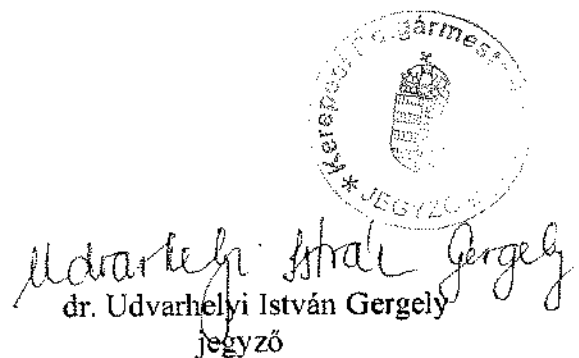 Kerepesi Polgármesteri
* JEGYZŐ *
Udvarhelyi István Gergely
dr. Udvarhelyi István Gergely
jegyző